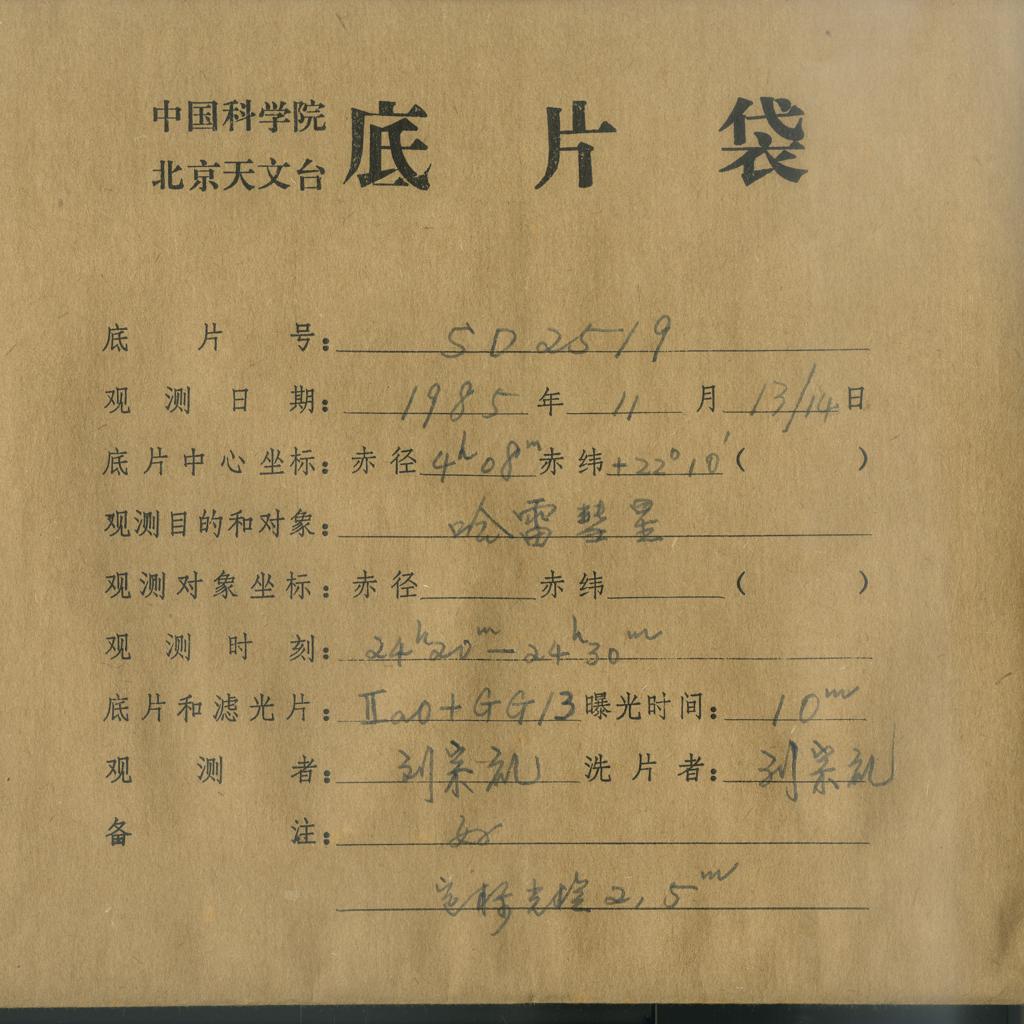 中国科学院
北京天文台
底片袋
底片号：SD2519
观测日期：1985年11月13/14日
底片中心坐标：赤径4h08m赤纬+22°10′（ ）
观测目的和对象：哈雷彗星
观测对象坐标：赤径 赤纬 （ ）
观测时刻：24h20m—24h30m
底片和滤光片：Ⅱa0+GG13曝光时间：10m
观测者：刘宗礼 洗片者：刘宗礼
备注：好
定标光楔2,5m